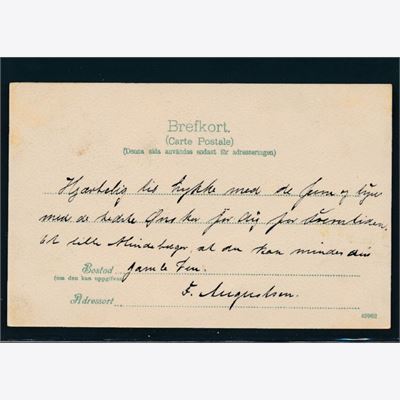 Brefkort.
(Carte Postale)
(Denna sida användes endast för adresseringen)
Hjærtelig til Lykke med de fem og tyve
med de bedste Ønsker for Dig for Fremtiden.
Et lille Mindebæger, at du kan mindes din
Bostad gamle Ven.
(om den kan uppgifvas)
F. Augustsen.
Adressort
42962